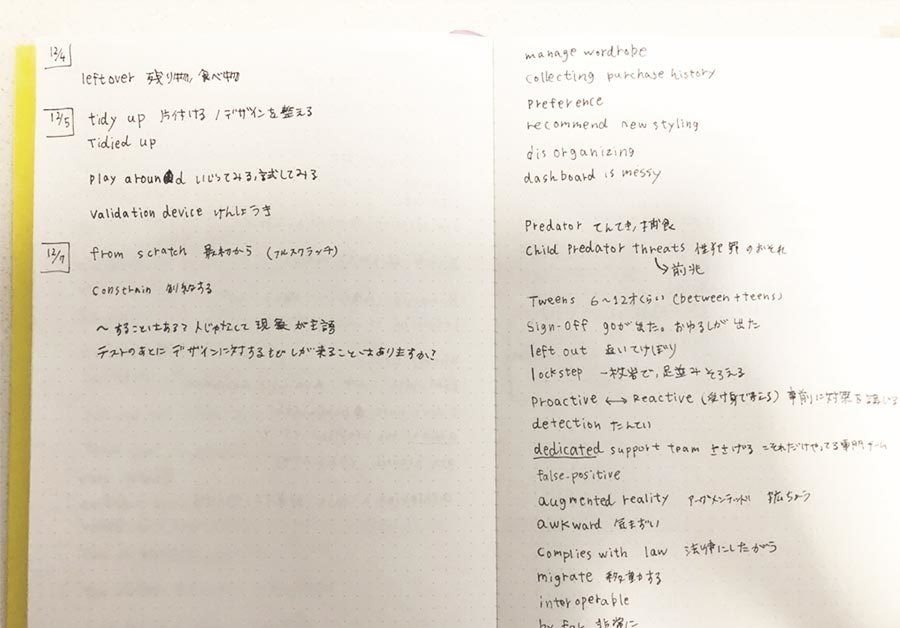 12/4
leftover 残り物, 食べ物
12/5
tidy up 片付ける / デザインを整える
Tidied up
Play around いじってみる, 試してみる
Validation device けんしょうき
12/7
from scratch 最初から (フルスクラッチ)
Constrain 制約する
〜することはある? 人じゃなくて 現象 が主語
テストのあとに デザインに対する が来ることはありますか?
manage wordrobe
Collecting purchase history
Preference
recommend new styling
dis organizing
dashboard is messy
Predator てんてき, 捕食
Child Predator threats 性犯罪 のおそれ
前兆
Tweens 6〜12才くらい (between + teens)
Sign-Off goが出た。おゆるしが出た
left out 置いてけぼり
lockstep 一枚岩で, 足並みそろえる
Proactive ↔ Reactive (受け身で) 事前に対策を
detection たんてい
dedicated support team ささげる = それだけやってる専門チーム
false-positive
augmented reality アーグメンテッド 拡ちょう
awkward 気まずい
Complies with law 法律にしたがう
migrate 移動する
interoperable
by far 非常に